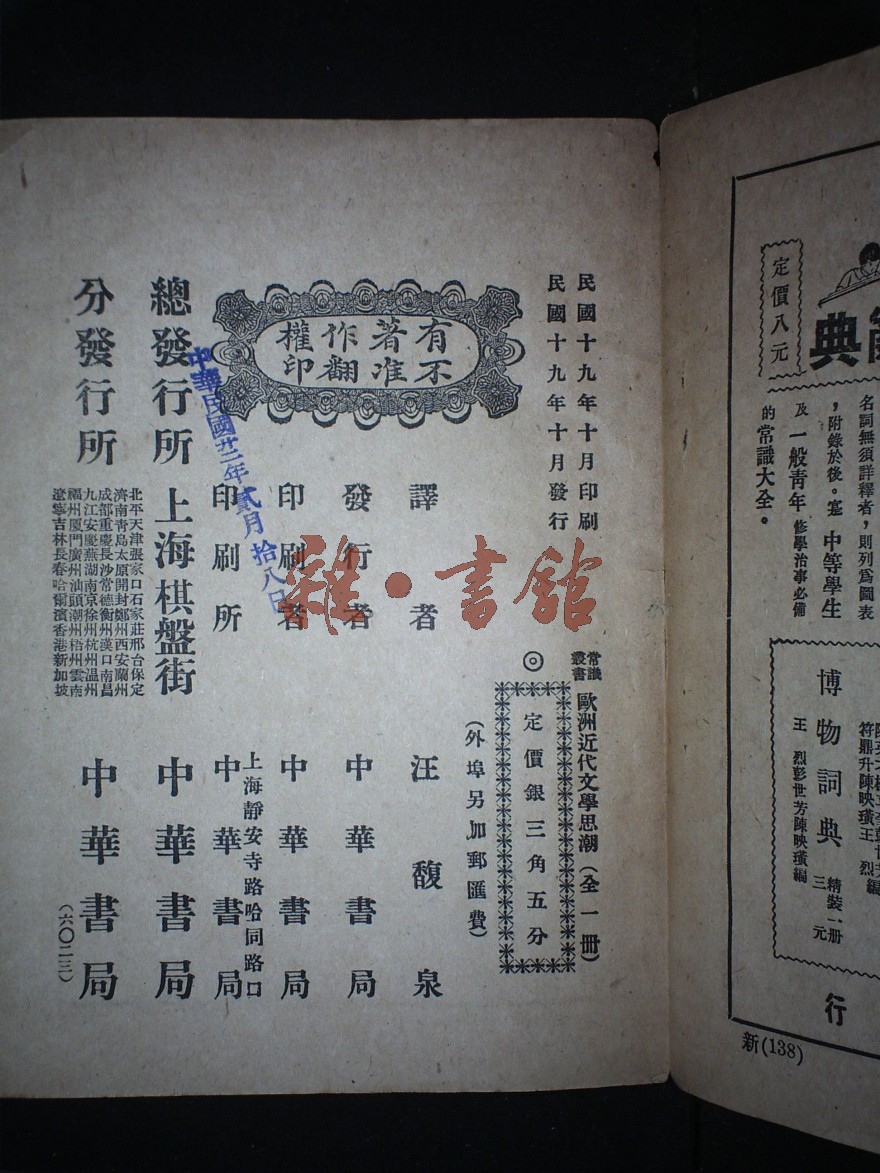 定價八元
典
名詞無須詳釋者,則列爲圖表
,附錄於後。寔中等學生
及一般靑年修學治事必備
的常識大全。
符鼎升陳映璜王烈編
博物詞典
精裝一册
三元
王烈彭世芳陳映璜編
行
新(138)
民國十九年十月印刷
民國十九年十月發行
有著作權
不准翻印
常識叢書
歐洲近代文學思潮(全一册)
◎
定價銀三角五分
(外埠另加郵匯費)
譯者 汪馥泉
發行者 中華書局
印刷者 中華書局
上海靜安寺路哈同路口
印刷所 中華書局
總發行所 上海棋盤街 中華書局
分發行所 中華書局
北平天津張家口石家莊邢台保定
濟南靑島太原開封鄭州西安蘭州
成都重慶長沙常德衡州漢口南昌
九江安慶蕪湖南京徐州杭州溫州
福州厦門廣州汕頭潮州梧州雲南
遼寧吉林長春哈爾濱香港新加坡
(六〇二三)
中華民國廿二年貳月拾八日
雜·書館